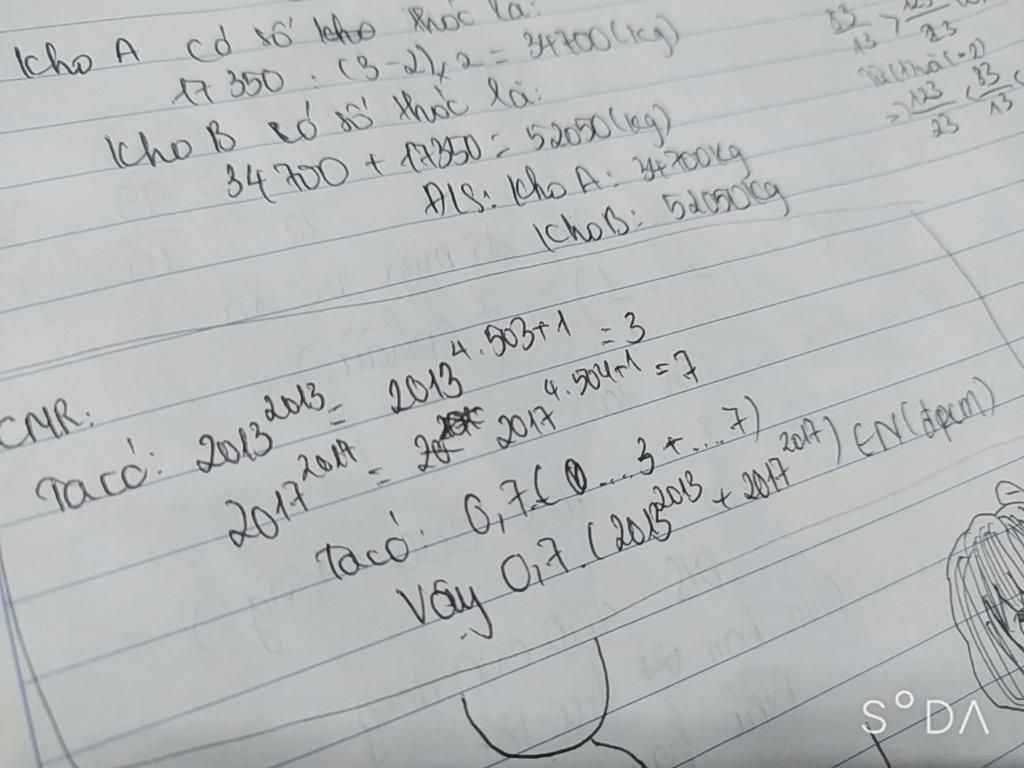 Kho A có số thóc là:
17350 : (3-2) x 2 = 34700 (kg)
Kho B có số thóc là:
34700 + 17350 = 52050 (kg)
Đ/S: Kho A: 34700kg
Kho B: 52050kg
33/13 > 123/23
=> 123/23 < 33/13
CMR:
Ta có: 2013^2013 = 2013^4.503+1 = 3
2017^2017 = 2017^4.504+1 = 7
Ta có: 0,7.(....3 + ....7)
Vậy 0,7.(2013^2013 + 2017^2017) ∈ N (đpcm)
S°DA